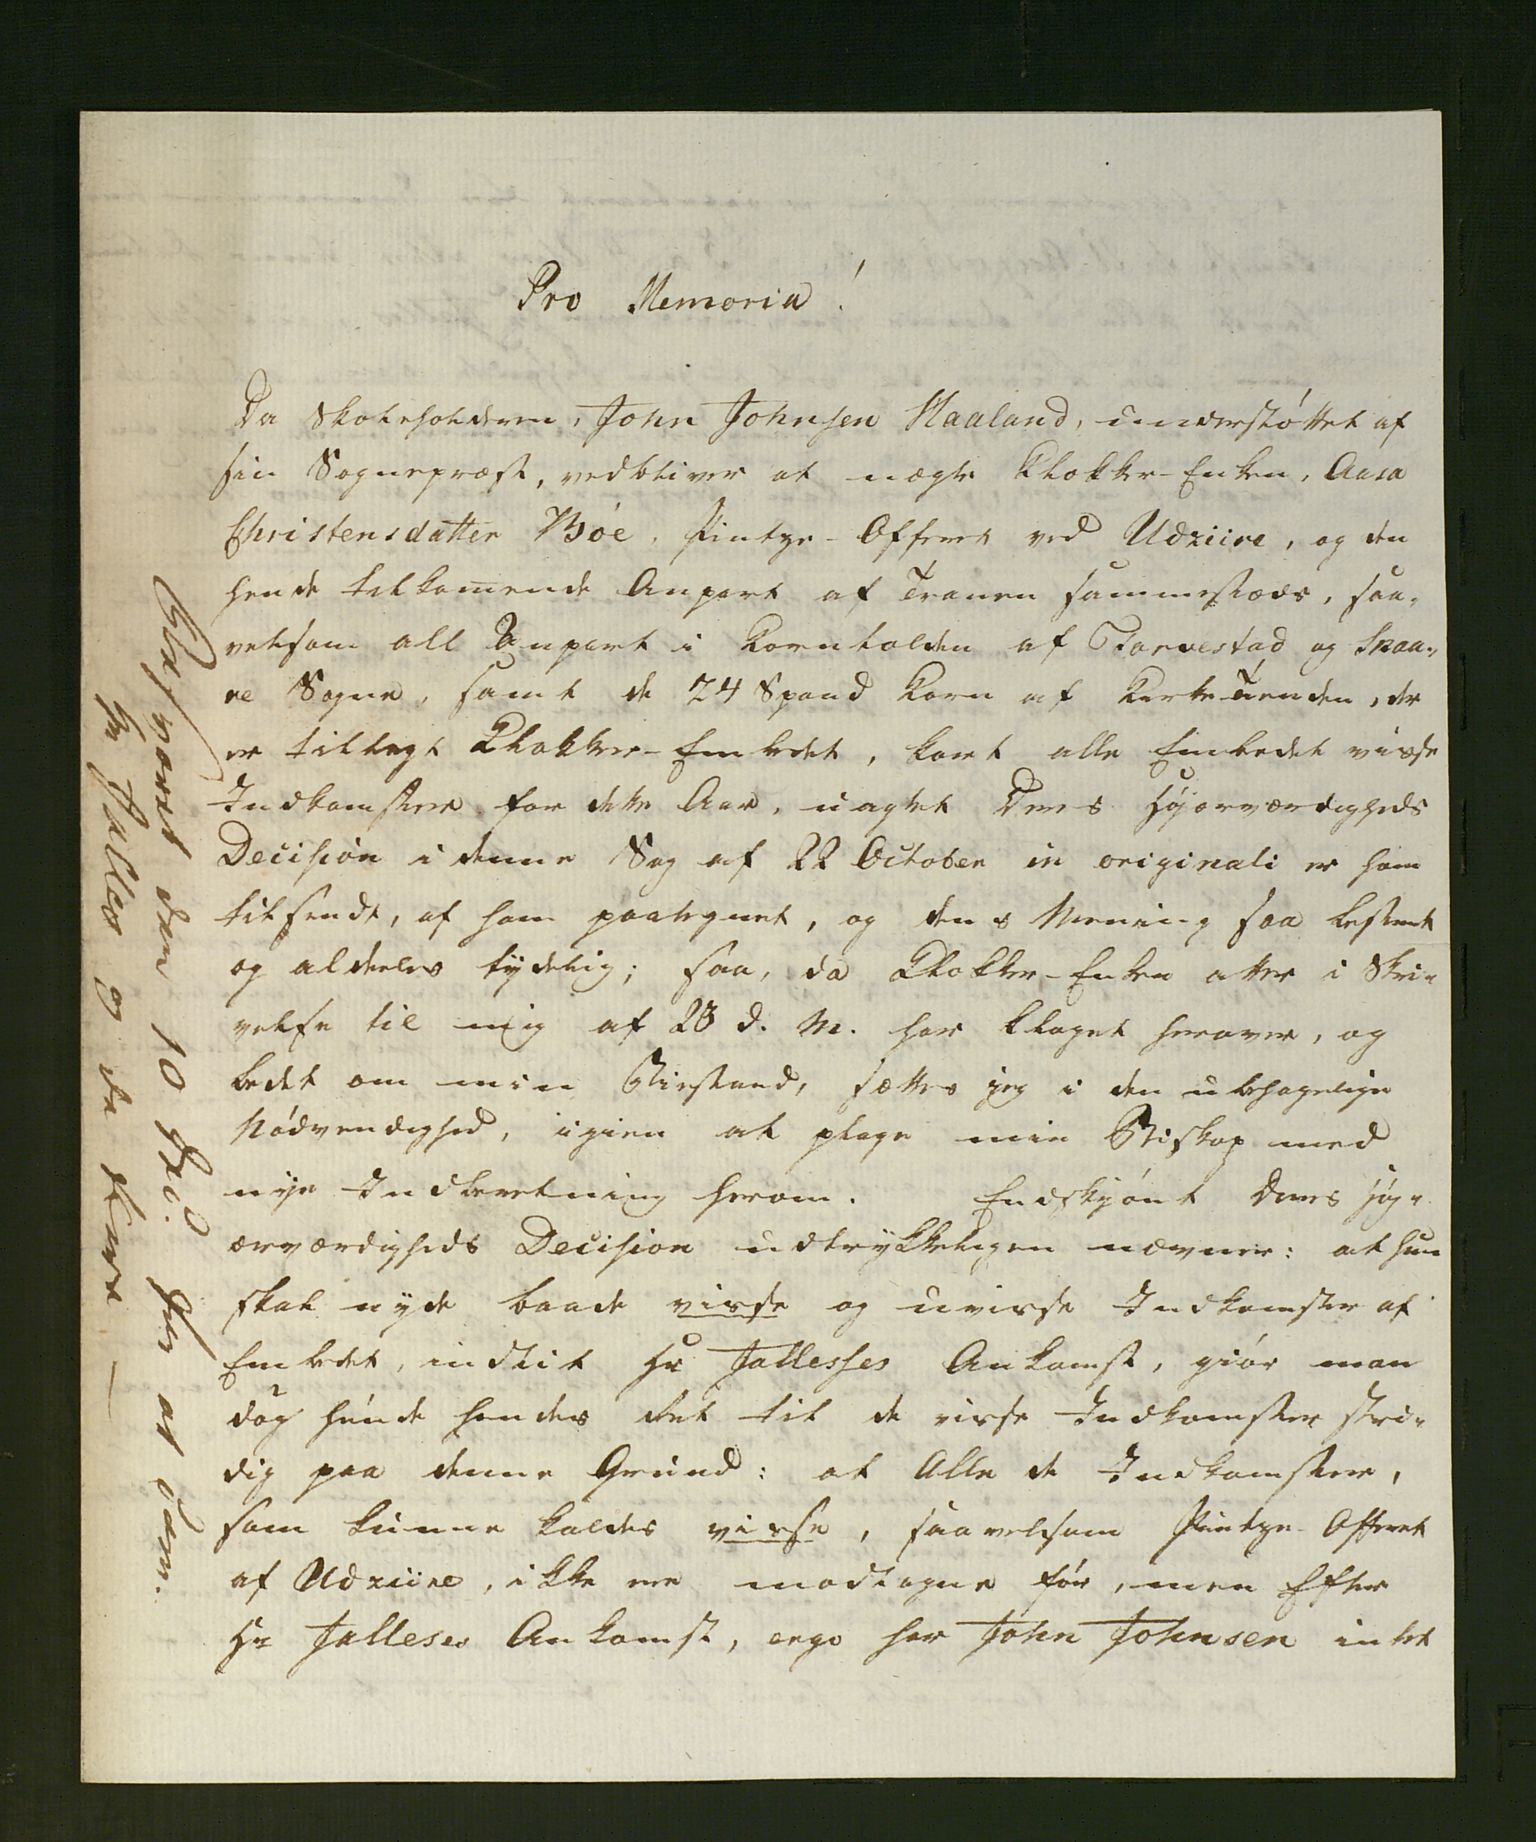 Pro Memoria!
Da Skoleholderen, John Johnsen Haaland, understöttet af
sin Sognepræst, vedbliver at nægte Klokker-Enken, Aasa
Christensdatter Böe, Pintze-Offeret ved Udziire, og den
hende tilkom̅ende Anpart af Tranen sammestæds, saa-
velsom all Anpart i Korntolden af Torvestad og Skaa-
re Sogne, samt de 24 Spand Korn af KirkeTienden, der
er tillagt Klokker-Embedet, kort alle Embedet visse
Indkomster for dette Aar, uagtet Deres Høyærværdigheds
Decision i denne Sag af 22 October in originali er ham
tilsendt, af ham paategnet, og dens Mening saa bestemt
og aldeles tydelig; saa, da Klokker-Enken atter i Skri-
velse til mig af 23 d. M. har klaget herover, og
bedet om min Bistand, sættes jeg i den ubehagelige
Nödvendighed, igien at plage min Biskop med
nye Indberetning herom. Endskjönt Deres Høy-
ærværdigheds Decision udtrykkeligen nævner: at hun
skal nyde baade visse og uvisse Indkomster af
Embedet, indtil Hr Jallesses Ankomst, giör man
dog hende hendes Ret til de visse Indkomster stri-
dig paa denne Grund: at Alle de Indkomster,
som kunne kaldes visse, saavelsom Pintze-Offeret
af Udziire, ikke ere modtagne för, men Efter
Hr Jalleses Ankomst, ergo har John Johnsen intet
Besvaret den 10 for at
Hr Jalles og